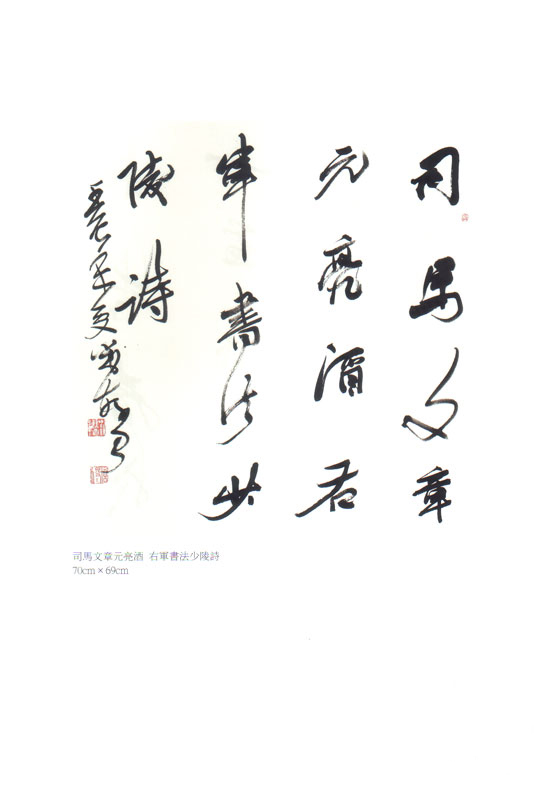 司馬文章
元亮酒右
軍書法少
陵詩
司馬文章元亮酒 右軍書法少陵詩
70cm×69cm